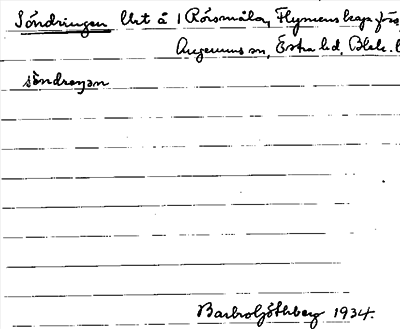 Söndringen Urt å 1 Rörsmåla, Flymens
Augerums sn, Östra hd, Blek.
söndreŋən
Barbro Göthberg 1934.